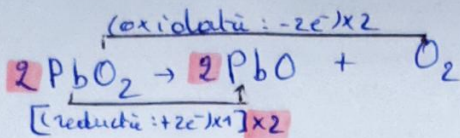 (oxidatie: -2e⁻)×2
2 PbO₂ → 2 PbO + O₂
[(reductie: +2e⁻)×1]×2